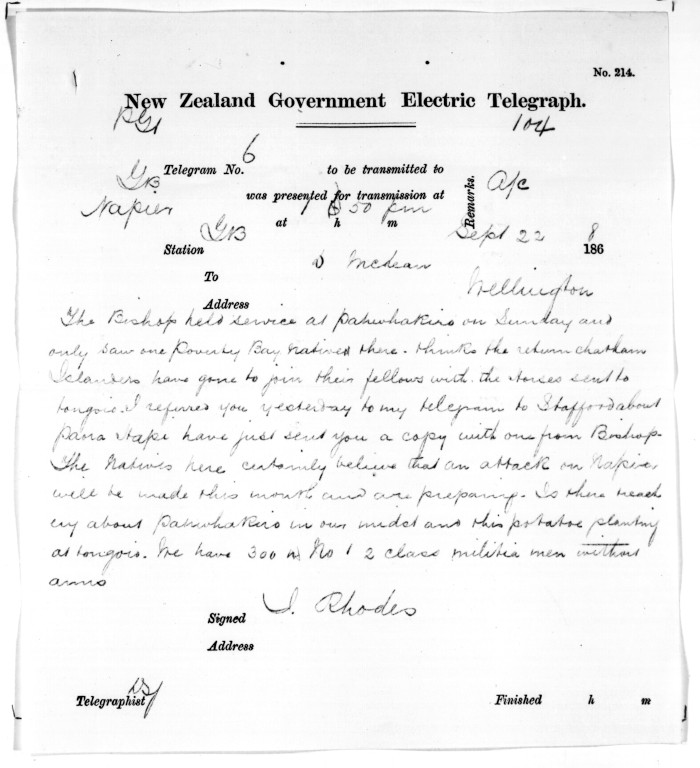 No. 214.
New Zealand Government Electric Telegraph.
104
Telegram No. 6 to be transmitted to
GB
Remarks. A/c
was presented for transmission at
Napier
at 1 h 50 m pm
GB
Sept 22
Station
186 8
To D McLean
Address Wellington
The Bishop held service at Pahwhakiro on Sunday and
only saw one Poverty Bay Native there - thinks the return chatham
Islanders have gone to join their fellows with the horses sent to
tongoio. I referred you yesterday to my telegram to Stafford about
Hape have just sent you a copy with one from Bishop -
The Natives here certainly believe that an attack on Napier
will be made this month and are preparing - Is there treach
ery about Pahwhakiro in our midst and this potatoe planting
at tongoio. We have 300 No 1 2 class militia men without
arms
Signed J. Rhodes
Address
Telegraphist
Finished h m